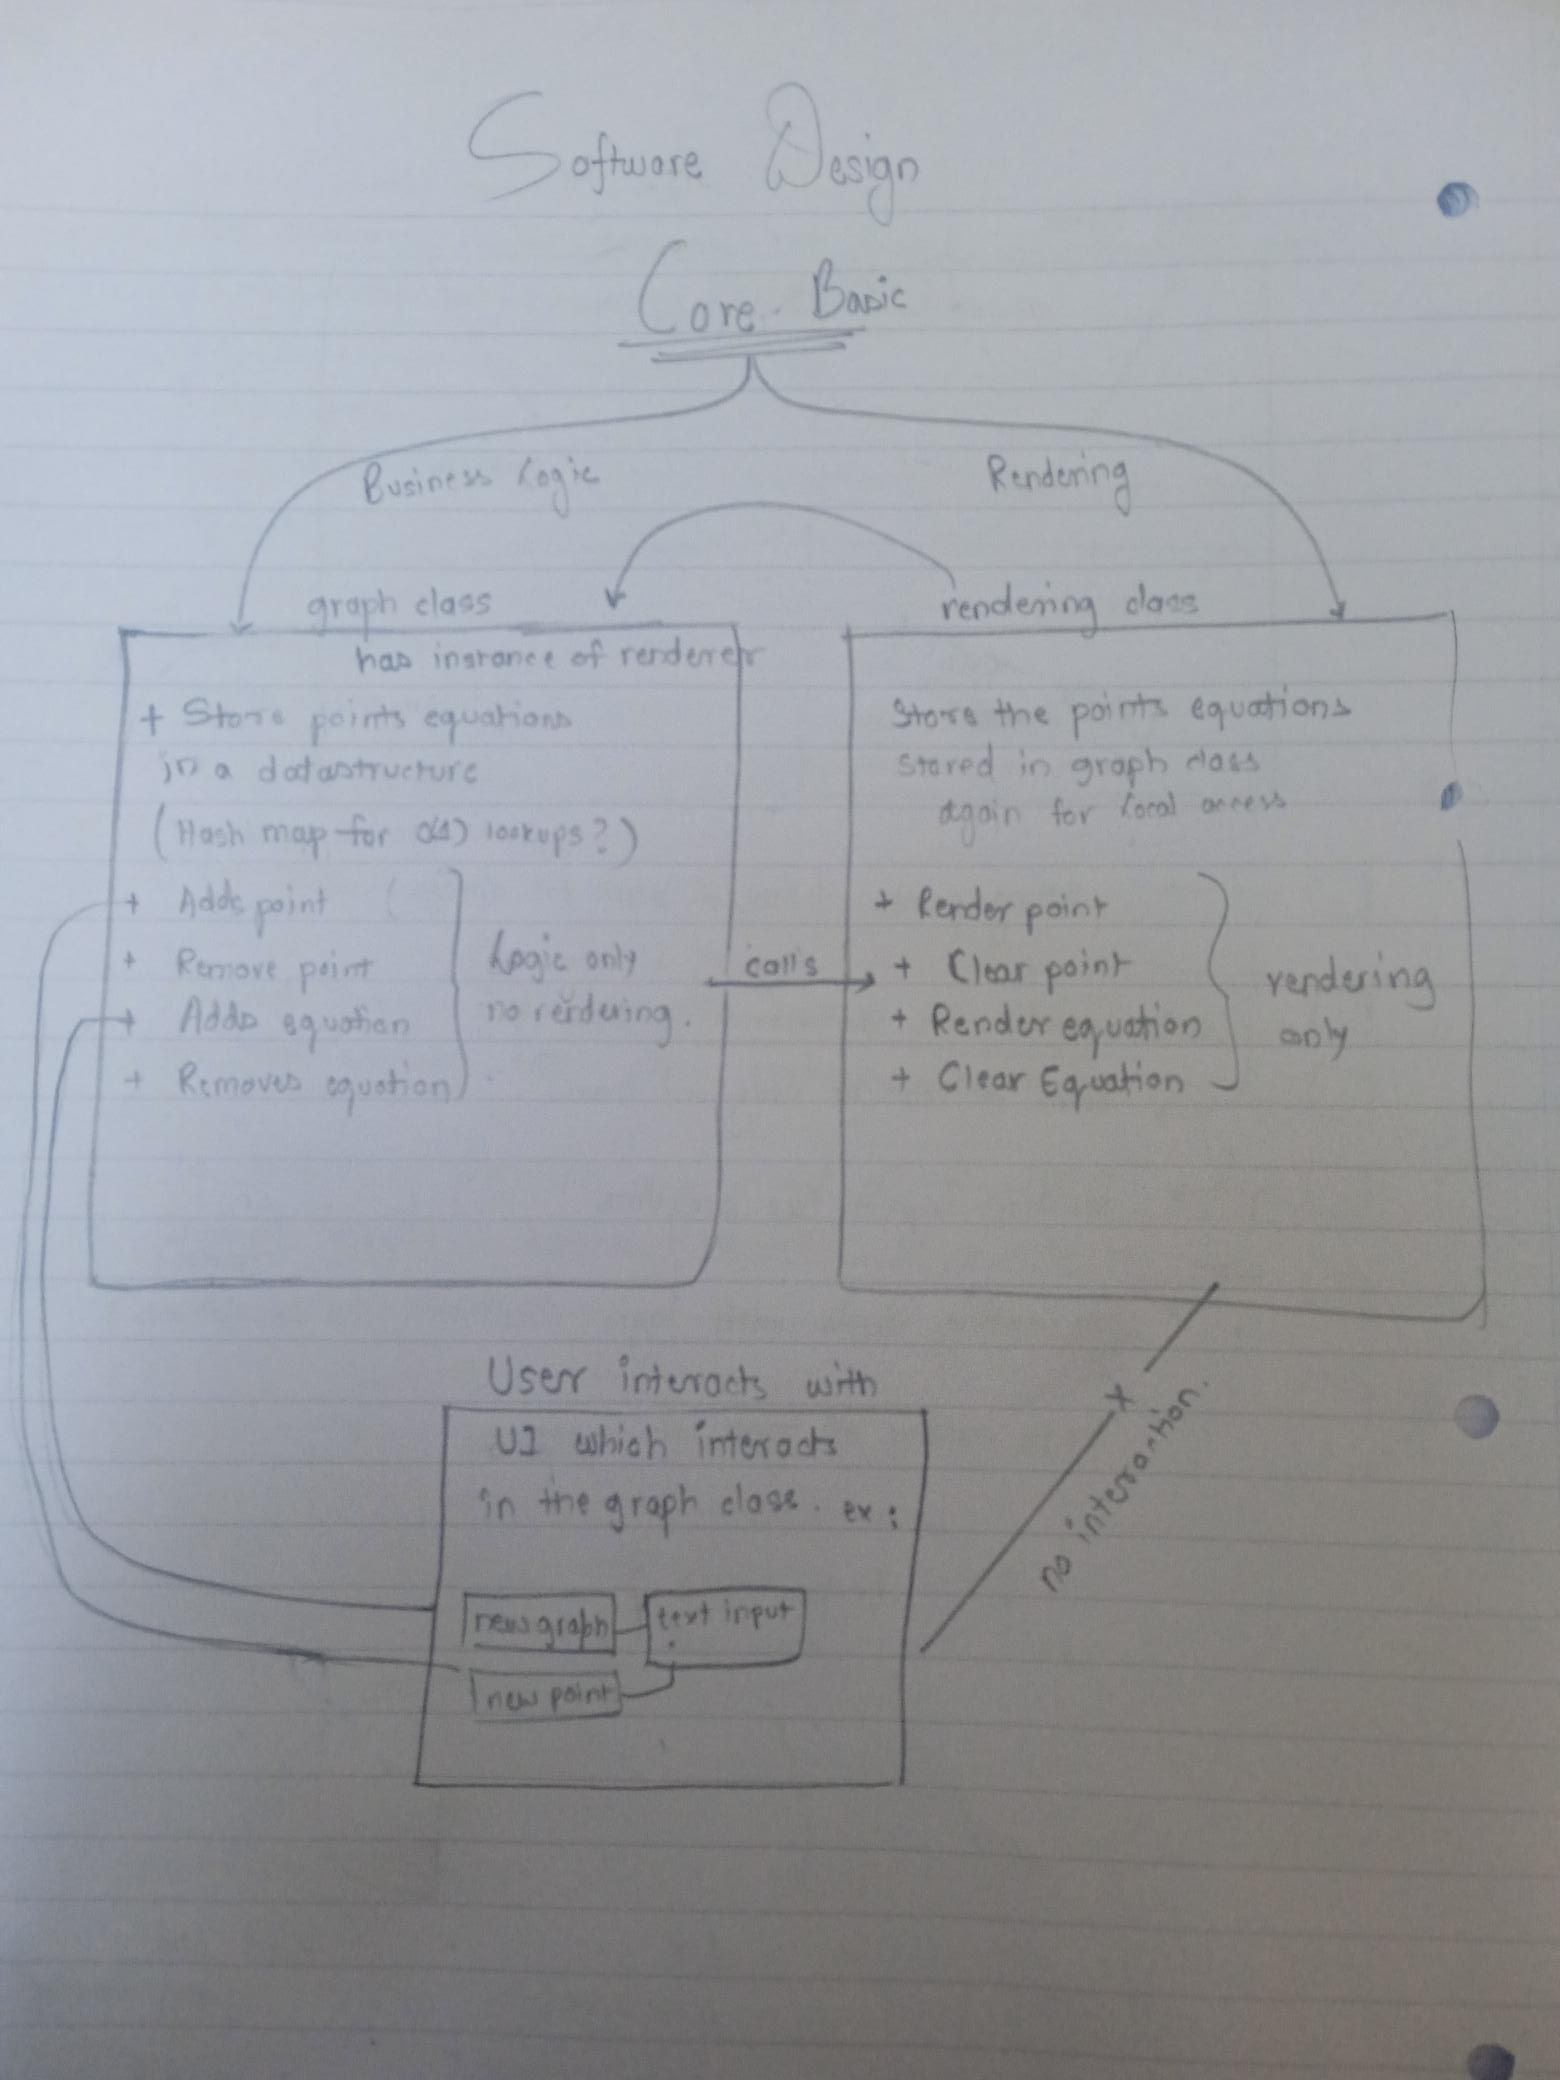 Software Design
Core - Basic
Business Logic
Rendering
graph class
has instance of renderer
+ Store points equations
in a datastructure
(Hash map for O(1) lookups?)
+ Adds point
+ Remove point
+ Adds equation
+ Removes equation
Logic only
no rendering.
calls
rendering class
Store the points equations
stored in graph class
again for local access
+ Render point
+ Clear point
+ Render equation
+ Clear Equation
rendering
only
User interacts with
UI which interacts
in the graph class. ex:
new graph
text input
new point
x
no interaction.